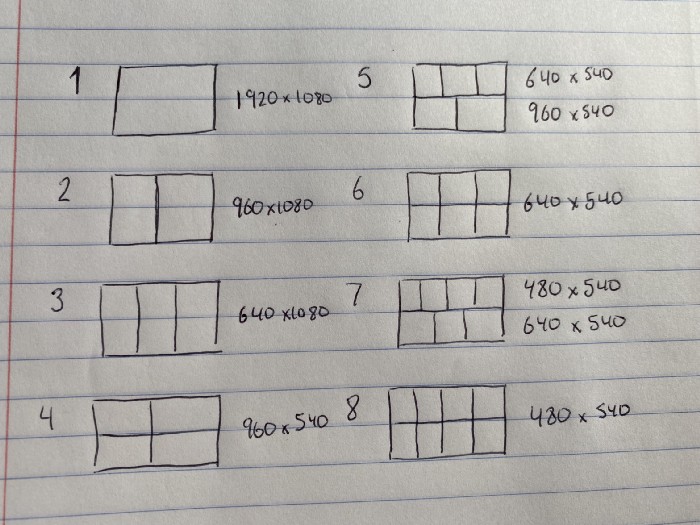 1
1920 x 1080
2
960 x 1080
3
640 x 1080
4
960 x 540
5
640 x 540
960 x 540
6
640 x 540
7
480 x 540
640 x 540
8
480 x 540